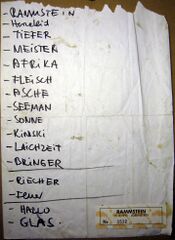 - RAMMSTEIN
- Herzeleid
- TIEFER
- MEISTER
- AFRIKA
- FLEISCH
- ASCHE
- SEEMAN
- SONNE
- KINSKI
- LAICHZEIT
- BRINGER
- RIECHER
- HALLO
- GLAS
RAMMSTEIN
No.